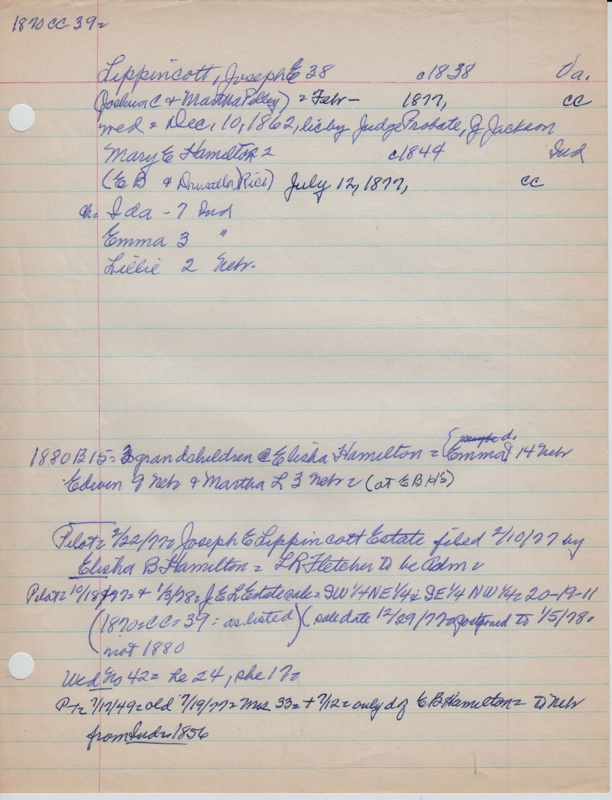 1870 CC 39=
Lippincott, Joseph E 38 c1838 Va.
(Joshua C & Martha Polley) = Febr - 1877, CC
med = Dec. 10, 1862, lic by Judge Probate, J Jackson
Mary E Hamilton = c1844 Ind
(E B & Drusilla Rice) July 12, 1877, CC
ch= Ida - 7 Ind
Emma 3 "
Lillie 2 Nebr.
1880 B 15 = 3 grandchildren @ Elisha Hamilton = Emma 14 Nebr
Edwin 9 Nebr & Martha L 3 Nebr = (at E B H's)
Pilot = 2/22/77 = Joseph E Lippincott Estate filed 2/10/77 by
Elisha B Hamilton = L R Fletcher to be Adm =
Pilot = 10/18/77 = & 1/3/78 = J E L Estate sale = SW 1/4 NE 1/4 & SE 1/4 NW 1/4 = 20-19-11
(1870 = CC = 39 = as listed) (sale date 12/29/77 = postponed to 1/5/78=
not 1880
Wed No 42 = he 24, she 17=
7/19/77 = Mrs 33 = + 7/12 = only d of E B Hamilton = to Nebr
from Ind = 1856